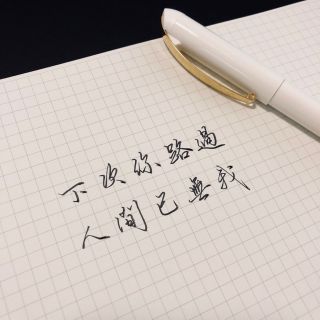 下次你路過
人間已無我